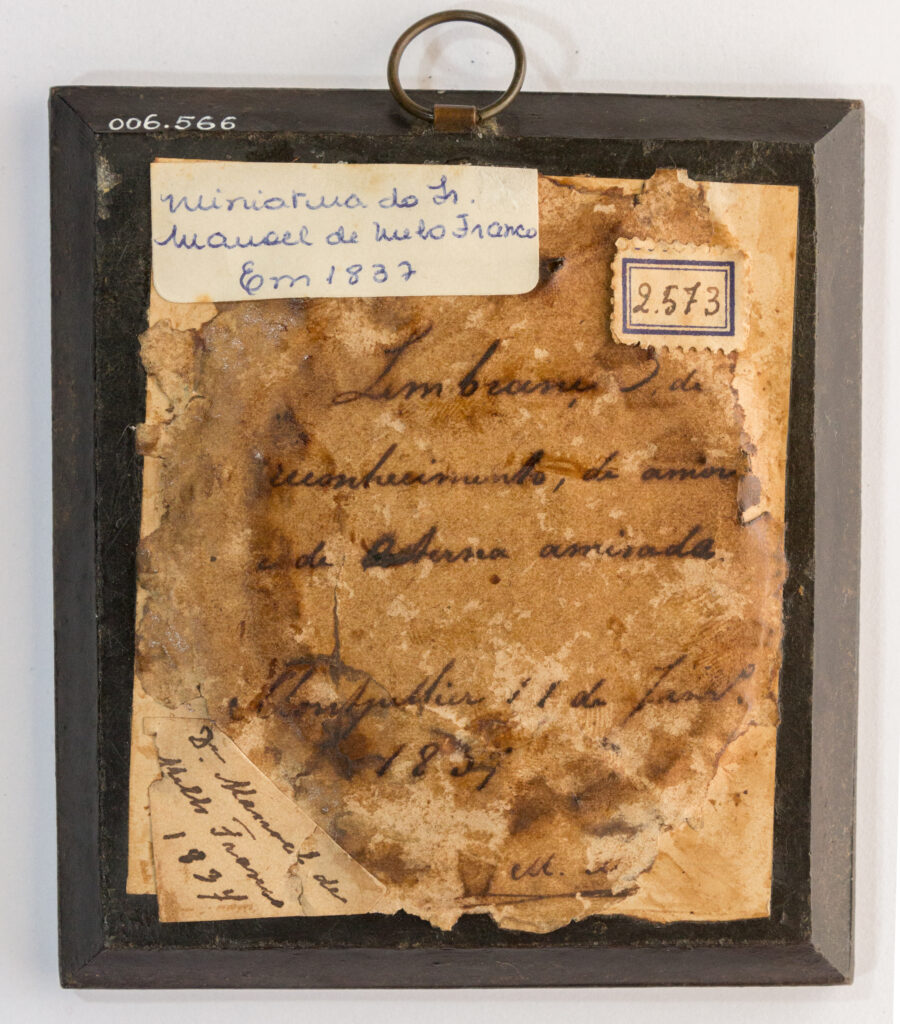 006.566
Miniatura do Sr.
Manoel de Melo Franco
Em 1837
2.573
Lembrança de
reconhecimento, de amor
e de eterna amisade.
Montpellier 11 de Janrº.
1837
M. M
Dr. Manoel de
Mello Franco
1837